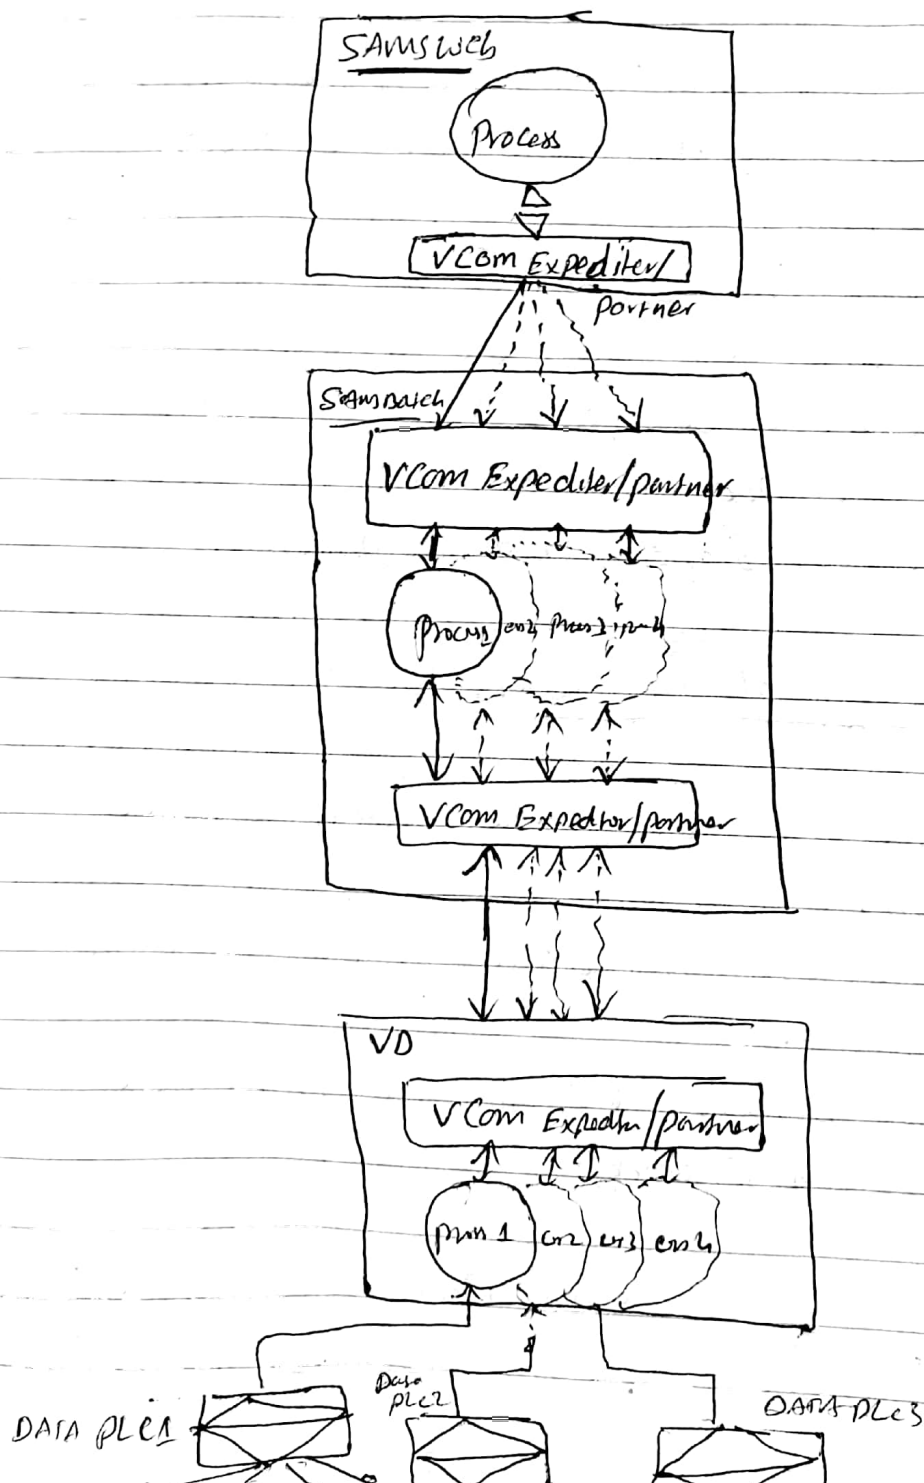 SAMSWeb
Process
VCom Expediter/
Partner
SAMSBatch
VCom Expediter/partner
Process1
Proces3
VCom Expeditor/partner
VD
VCom Expediter/partner
DATA PLC1
Data
PLC2
DATA PLC3